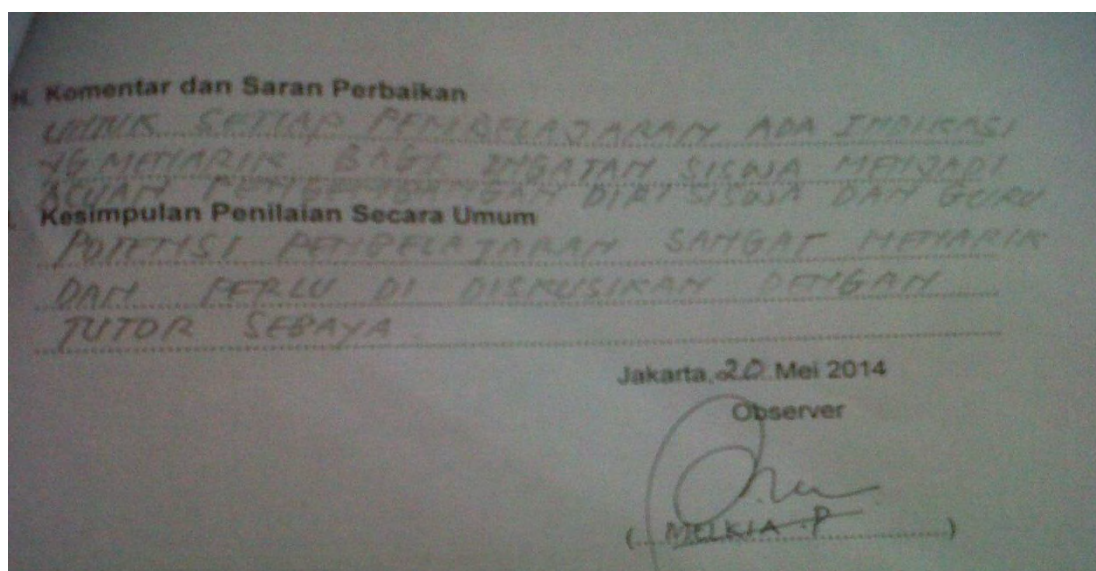 H. Komentar dan Saran Perbaikan
UNTUK SETIAP PEMBELAJARAN ADA INDIKASI
YG MENARIK BAGI INGATAN SISWA MENJADI
ACUAN PENGEMBANGAN DIRI SISWA DAN GURU
Kesimpulan Penilaian Secara Umum
POTENSI PEMBELAJARAN SANGAT MENARIK
DAN PERLU DI DISKUSIKAN DENGAN
TUTOR SEBAYA
Jakarta, 20 Mei 2014
Observer
(MELKIA .P)